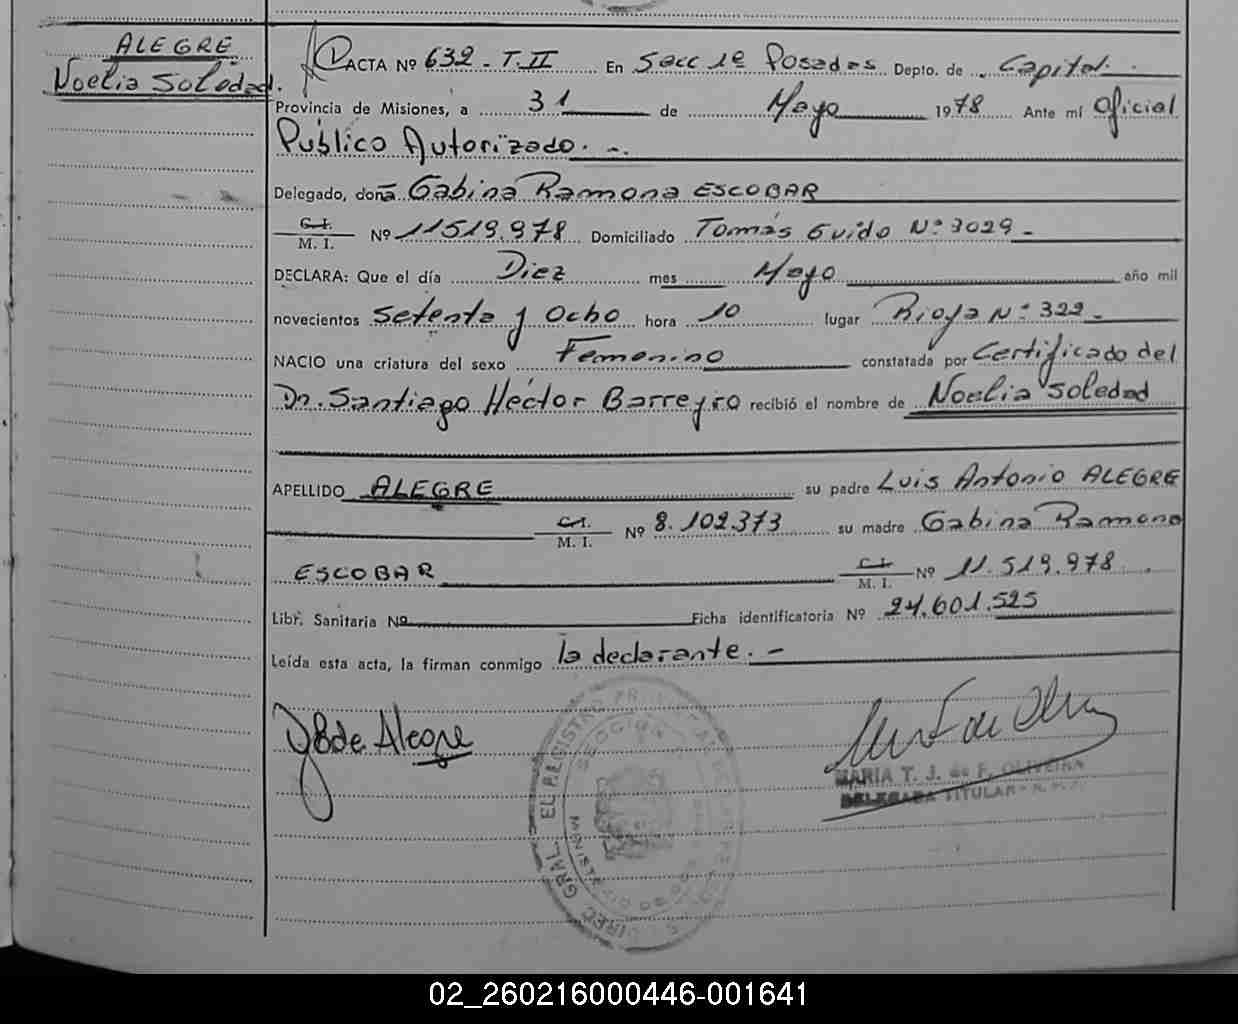 ALEGRE
Noelia Soledad.
ACTA Nº 632 - T. II En Secc 1ª Posadas Depto. de Capital.
Provincia de Misiones, a 31 de Mayo 1978 Ante mí Oficial
Público Autorizado. -
Delegado, doña Gabina Ramona ESCOBAR
C. I.
M. I. Nº 11519.978 Domiciliado Tomás Guido Nº 3029 -
DECLARA: Que el día Diez mes Mayo año mil
novecientos setenta y ocho hora 10 lugar Rioja Nº 322 -
NACIO una criatura del sexo Femenino constatada por Certificado del
Dr. Santiago Héctor Barreyro recibió el nombre de Noelia Soledad
APELLIDO ALEGRE su padre Luis Antonio ALEGRE
C. I.
M. I. Nº 8.102.373 su madre Gabina Ramona
ESCOBAR C. I.
M. I. Nº 11.519.978
Libr. Sanitaria Nº Ficha identificatoria Nº 24.601.525
Leída esta acta, la firman conmigo la declarante. -
de Alegre
MARIA T. J. de F. OLIVEIRA
DELEGADA TITULAR
DIREC. GRAL. EL REGISTRO PROVINCIAL DE LAS PERSONAS
SECCION
MISIONES
02_260216000446-001641